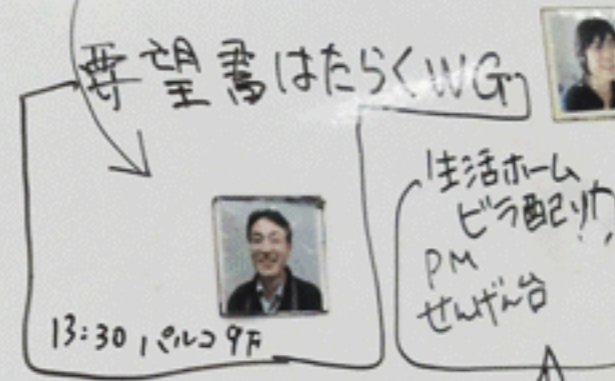 要望書はたらくWG
13:30 パルコ9F
生活ホーム
ビラ配り
PM
せんげん台